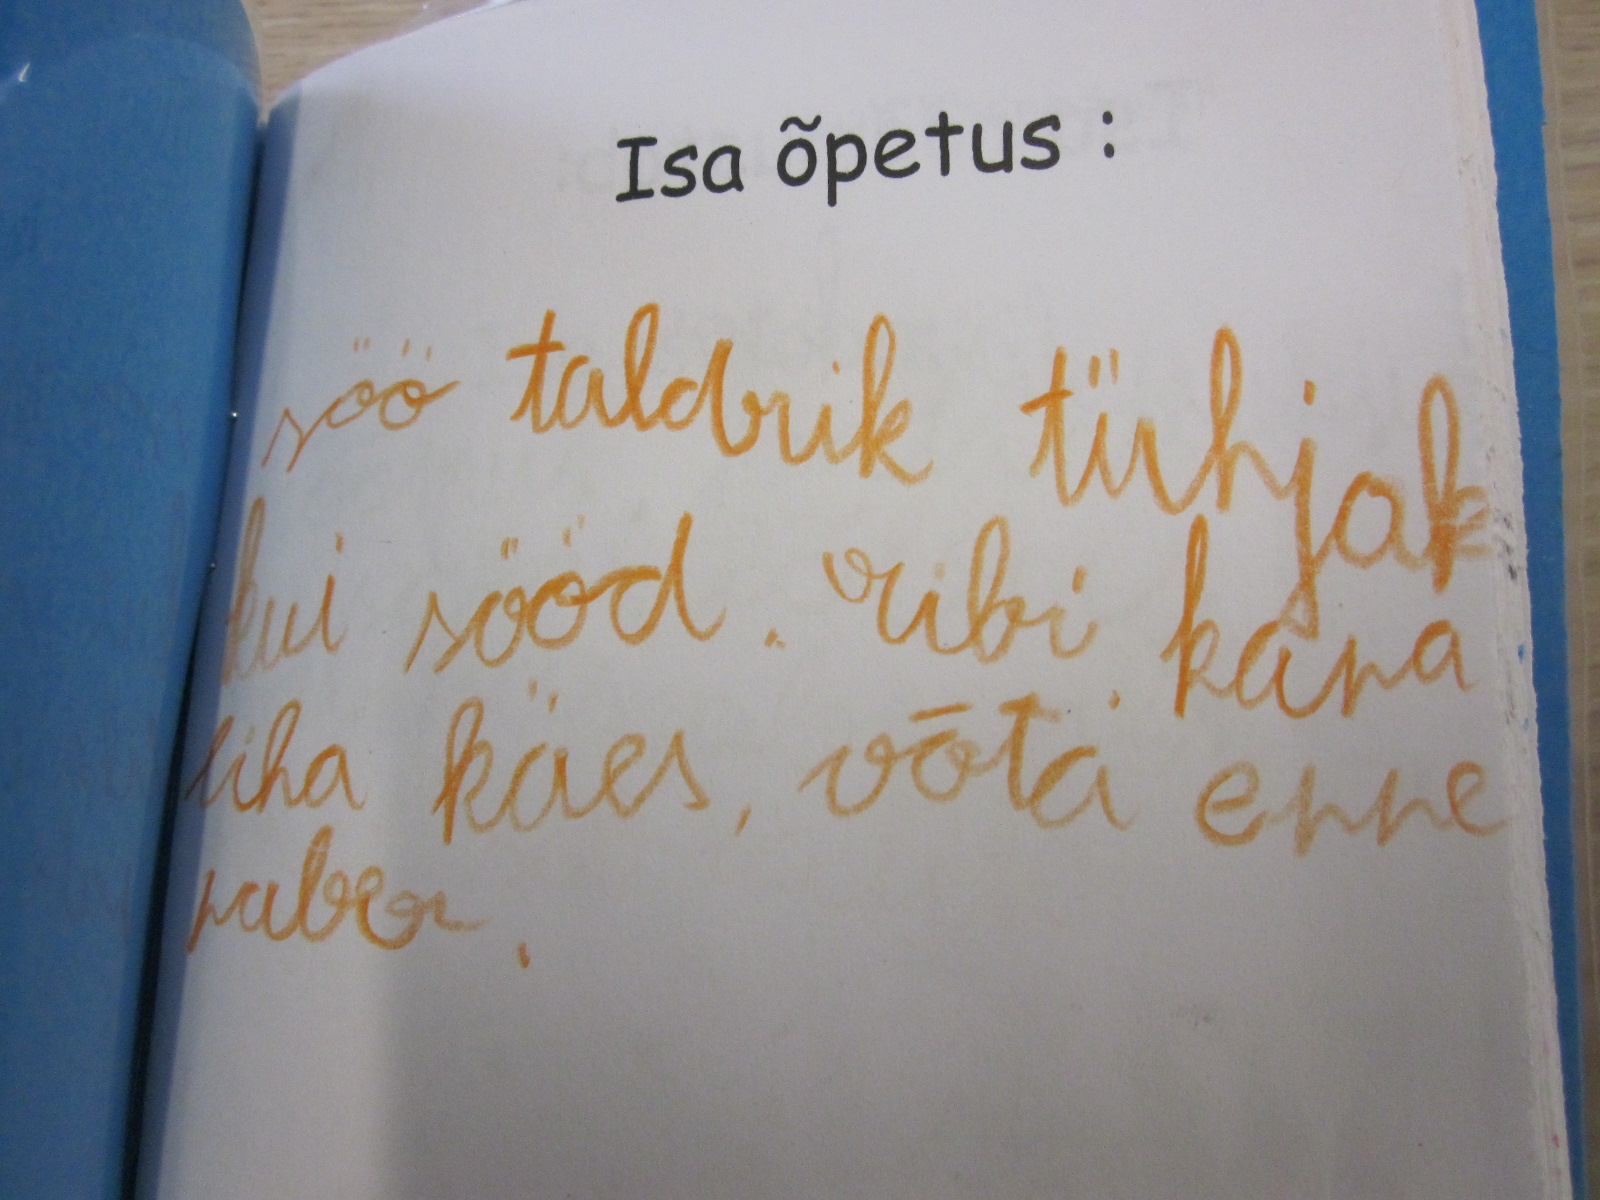 Isa õpetus :
söö taldrik tühjak
kui sööd. ribi kana
liha käes, võta enne
naber.